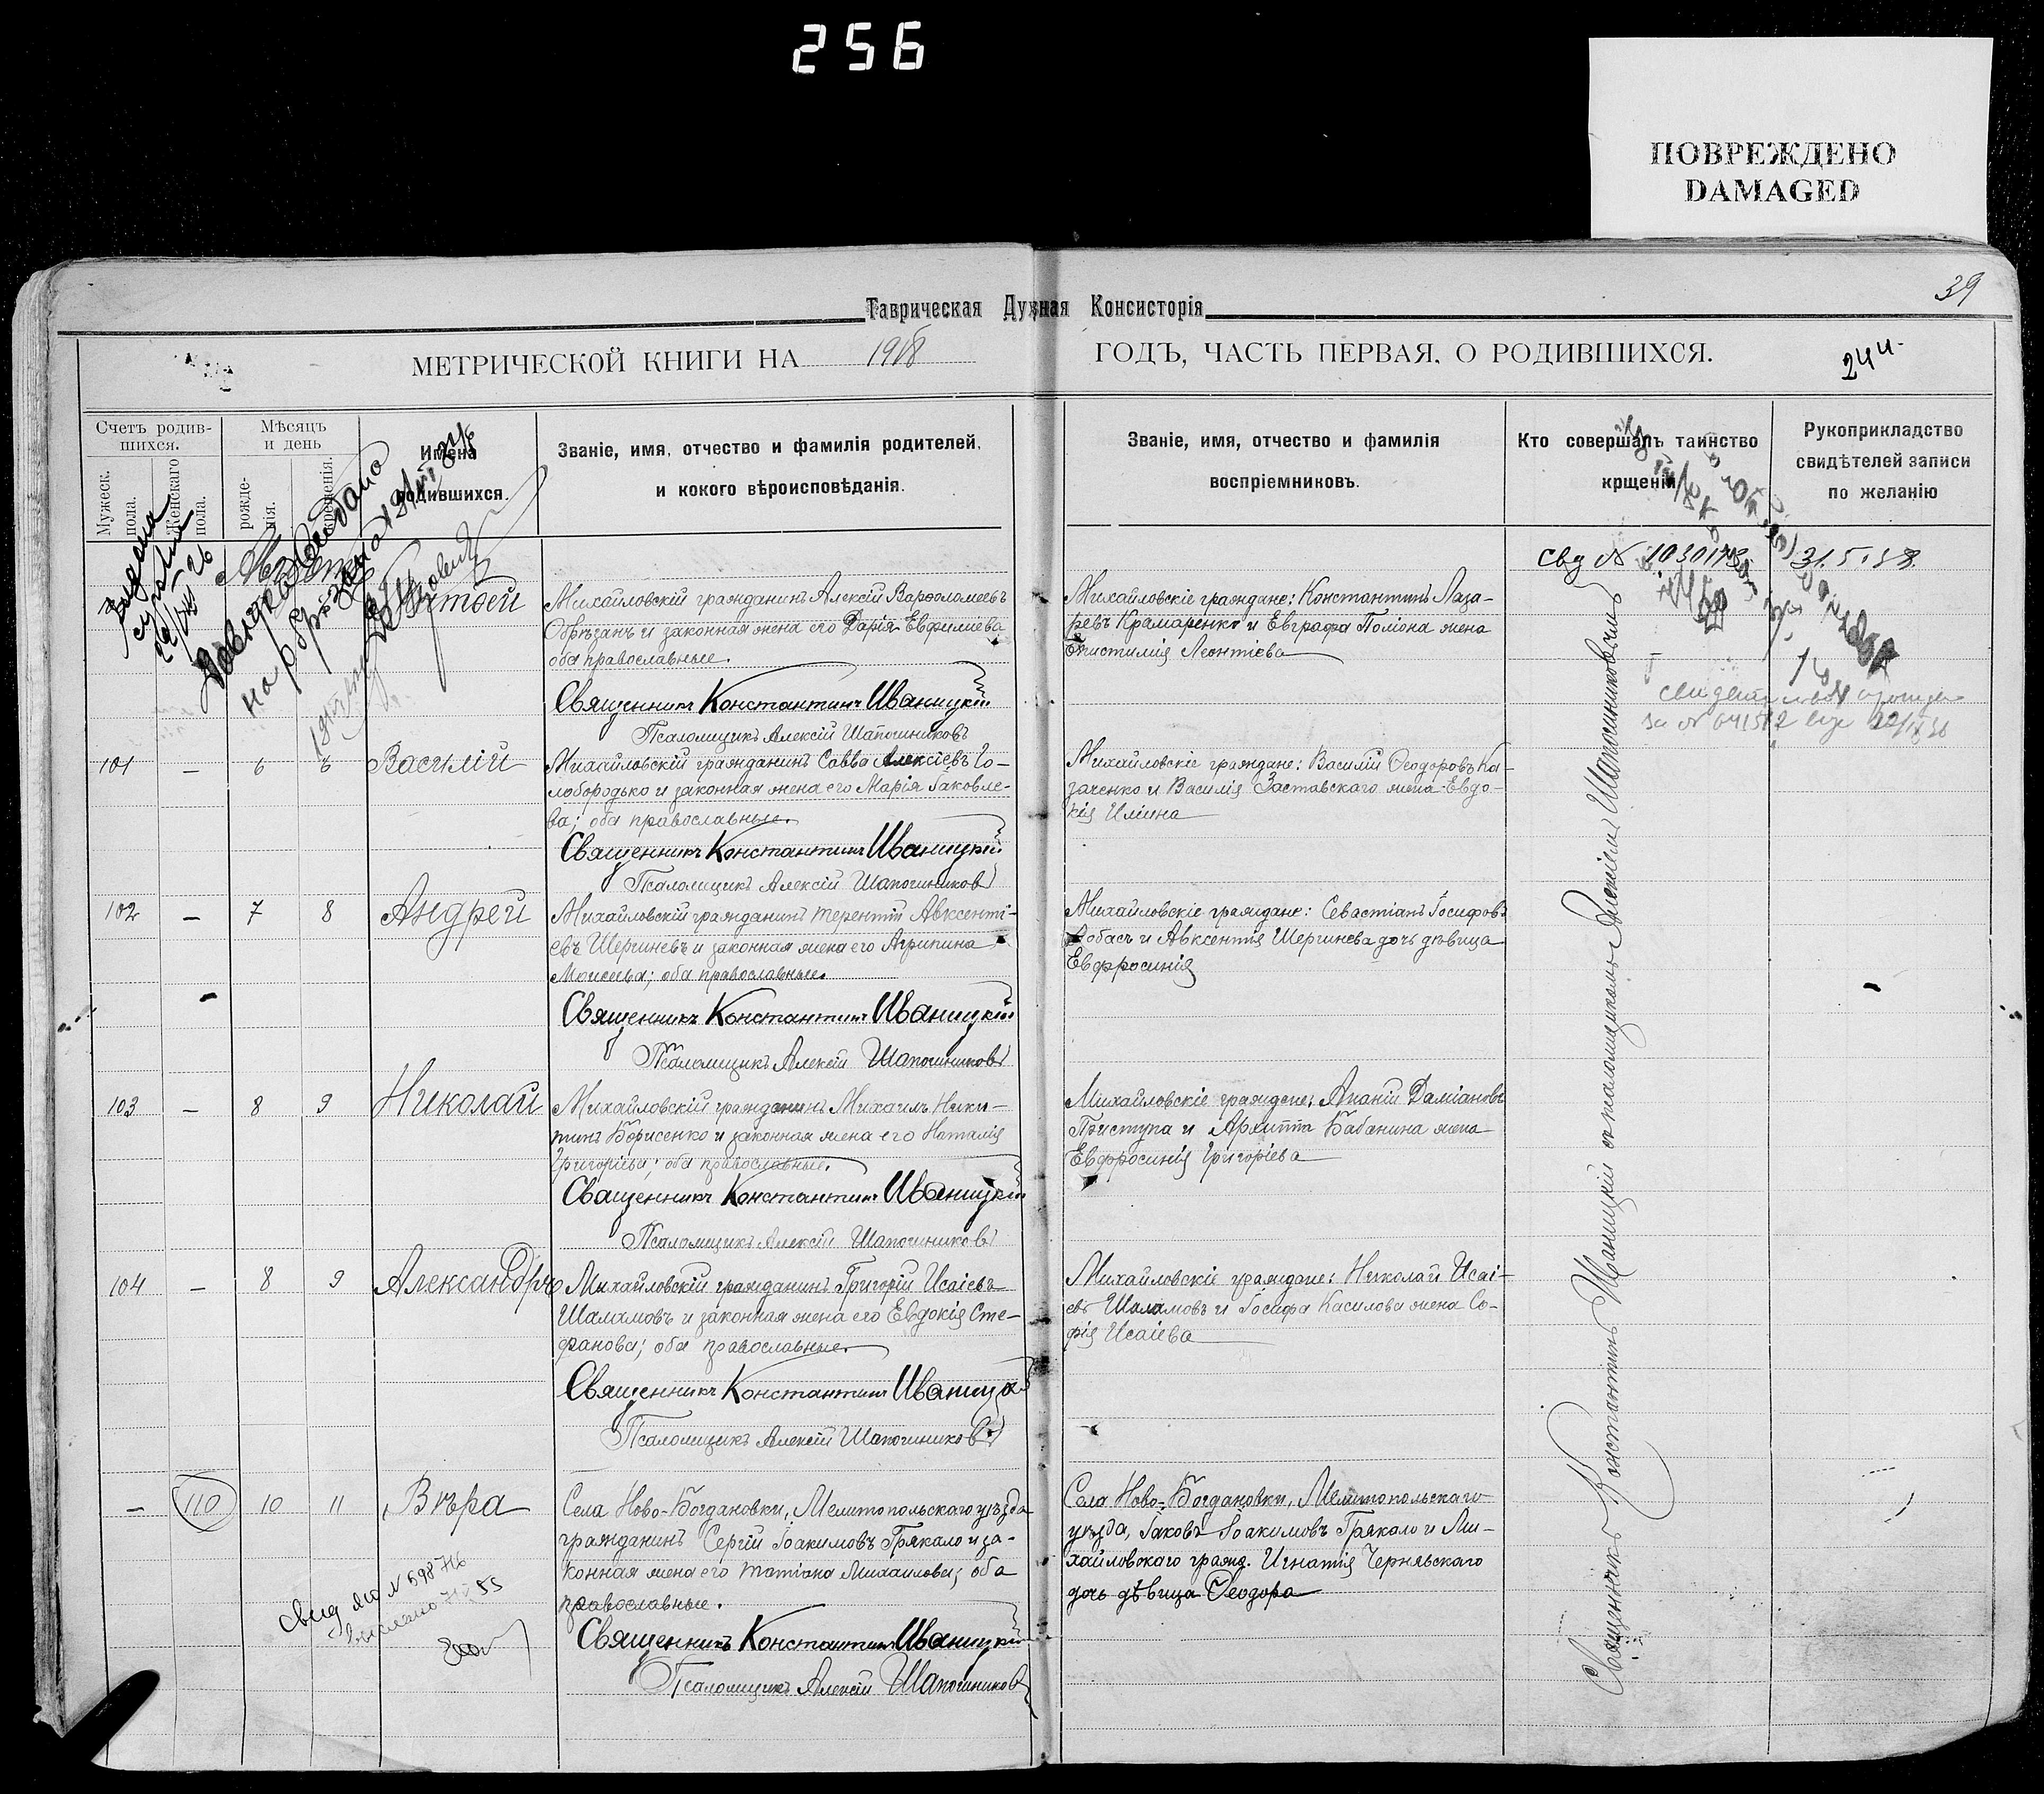 256
ПОВРЕЖДЕНО
DAMAGED
39
Таврическая Духная Консисторія
МЕТРИЧЕСКОЙ КНИГИ НА 1918 ГОДЪ, ЧАСТЬ ПЕРВАЯ, О РОДИВШИХСЯ.
Счетъ родив-
шихся.
Мужеск.
пола.
Женскаго
пола.
Мѣсяцъ
и день
рожде-
нія.
крещенія.
Имена
родившихся.
Званіе, имя, отчество и фамилія родителей,
и кокого вѣроисповѣданія.
Званіе, имя, отчество и фамилія
воспріемниковъ.
Кто совершалъ таинство
крщенія
Рукоприкладство
свидѣтелей записи
по желанію
свд N 31.5.58.
Михайловскій гражданинъ Алексій Варѳоломеевъ
Обрѣзанъ и законная жена его Дарія Евфиміева
оба православные.
Священникъ Константинъ Иваницкій
Псаломщикъ Алексій Шапошниковъ
Михайловскіе граждане: Константинъ Лаза-
ревъ Крамаренко и Евграфа Поліона жена
Епистимія Леонтіева
101 — 6 6 Василій
Михайловскій гражданинъ Савва Алексіевъ Го-
лобородько и законная жена его Марія Іаковле-
ва; оба православные.
Священникъ Константинъ Иваницкій
Псаломщикъ Алексій Шапошниковъ
Михайловскіе граждане: Василій Ѳеодоровъ Ка-
заченко и Василія Заставскаго жена Евдо-
кія Илиина
102 — 7 8 Андрей
Михайловскій гражданинъ Терентій Авксенті-
евъ Шергиневъ и законная жена его Агрипина
Моисеева; оба православные.
Священникъ Константинъ Иваницкій
Псаломщикъ Алексій Шапошниковъ
Михайловскіе граждане: Севастіанъ Іосифовъ
и Авксентія Шергинева дочь дѣвица
Евфросинія
103 — 8 9 Николай
Михайловскій гражданинъ Михаилъ Ники-
тинъ Борисенко и законная жена его Наталія
Григоріева; оба православные.
Священникъ Константинъ Иваницкій
Псаломщикъ Алексій Шапошниковъ
Михайловскіе граждане: Ананій Даміановъ
Приступа и Архиппа Бабанина жена
Евфросинія Григоріева
104 — 8 9 Александръ
Михайловскій гражданинъ Григорій Исаіевъ
Шаламовъ и законная жена его Евдокія Сте-
фанова; оба православные.
Священникъ Константинъ Иваницкій
Псаломщикъ Алексій Шапошниковъ
Михайловскіе граждане: Николай Исаі-
евъ Шаламовъ и Іосифа Касилова жена Со-
фія Исаіева
— 110 10 11 Вѣра
Села Ново-Богдановки, Мелитопольскаго уѣзда
гражданинъ Сергій Іоакимовъ Грякало и за-
конная жена его Татіана Михаилова; оба
православные.
Священникъ Константинъ Иваницкій
Псаломщикъ Алексій Шапошниковъ
Села Ново-Богдановки, Мелитопольскаго
уѣзда, Іаковъ Іоакимовъ Грякало и Ми-
хайловскаго гражд. Игнатія Чернявскаго
дочь дѣвица Ѳеодора
Священникъ Константинъ Иваницкій съ псаломщикомъ Алексіемъ Шапошниковымъ